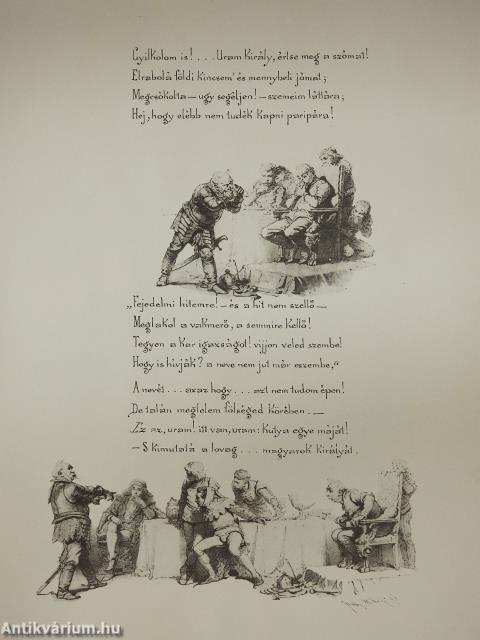 Gyilkolom is! . . . Uram Király, értse meg a szómat!
Elrabolá földi kincsem' és mennybeli jómat;
Megcsókolta — ugy segéljen! — szemeim láttára;
Hej, hogy elébb nem tudék kapni paripára!
„Fejedelmi hitemre! — és a hit nem szellő —
Meglakol a vakmerő, a semmire kellő!
Tegyen a kar igazságot! vijjon veled szembe!
Hogy is hívják? a neve nem jut már eszembe,"
A nevét . . . azaz hogy . . . azt nem tudom épen!
De talán meglelem fölséged körében. —
Ez az, uram! itt van, uram: kutya egye máját!
— S kimutatá a lovag . . . magyarok királyát.
Antikvárium.hu
http://www.antikvarium.hu